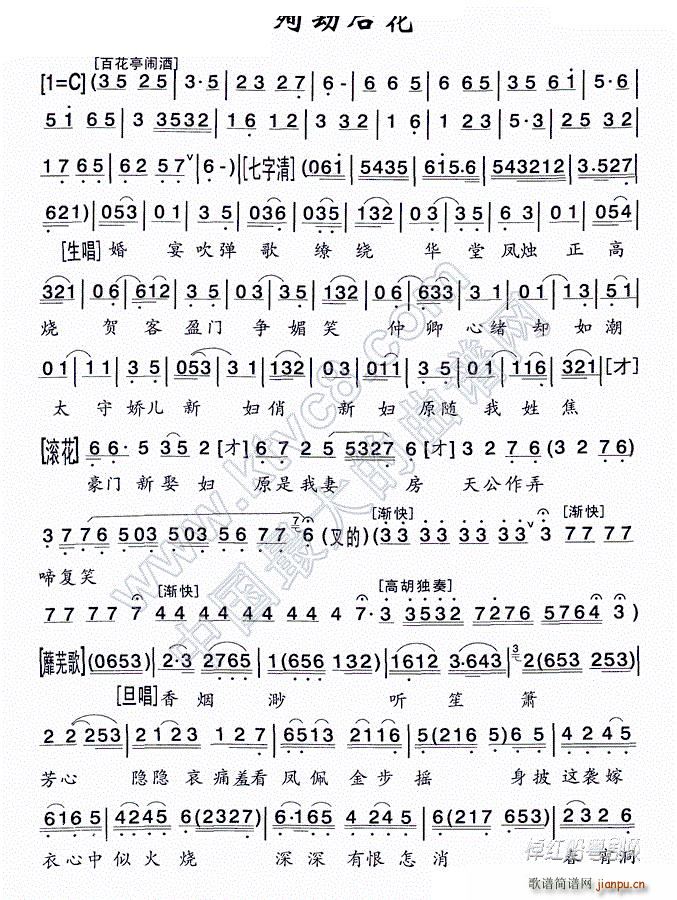 殉劫后花
[百花亭闹酒]
[1=C] (3 5 2 5 | 3·5 | 2 3 2 7 | 6 - | 6 6 5 | 3 5 6 5 | 3 5 6 i | 5·6
5 i 6 5 | 3 3532 | 1 6 1 2 | 3 3 2 | 1 6 | 1 2 3 | 5·3 | 2 5 3 2
1 7 6 5 | 6 2 5 7 | 6 -) | [七字清] (061 | 5435 | 615·6 | 543212 | 3·527
621) | 053 | 0 1 | 3 5 | 036 | 035 | 132 | 0 3 | 3 5 | 6 3 | 0 1 | 054
[生唱] 婚 宴 吹 弹 歌 缭 绕 华 堂 凤 烛 正 高
321 | 0 6 | 612 | 3 5 | 0 3 | 3 5 | 132 | 0 6 | 633 | 3 1 | 0 1 | 0 1 | 3 5 | 5 1
烧 贺 客 盈 门 争 媚 笑 仲 卿 心 绪 却 如 潮
0 1 | 1 1 | 3 5 | 053 | 3 1 | 132 | 0 3 | 011 | 3 5 | 0 5 | 0 1 | 116 | 321 | [才]
太 守 娇 儿 新 妇 俏 新 妇 原 随 我 姓 焦
[滚花] 6 6· 5 3 5 2 [才] 6 7 2 5 5327 6 [才] 3 2 7 6 (3 2 7 6)
豪 门 新 娶 妇 原 是 我 妻 房 天 公 作 弄
3 7 7 6 503 503 5 6 7 7 6 (又的) [渐快] (3 3 3 3 3 3 3 3 3 [渐快] 7 7 7 7
啼 复 笑
7 7 7 7 7 [渐快] 4 4 4 4 4 4 4 4 4 4 7· 3 [高胡独奏] 3532 7276 5764 3)
[蘼芜歌] (0653) | 2·3 2765 | 1(656 132) | 1612 3·643 | 2(653 253)
[旦唱] 香 烟 渺 听 笙 箫
2 2 253 | 2 1 2 3 1 2 7 | 6513 2 2 1 6 | 5(216 5) 5 | 4 2 4 5
芳 心 隐 隐 哀 痛 羞 看 凤 佩 金 步 摇 身 披 这 袭 嫁
6165 | 4245 6(2327) | 6·165 4245 | 6(217 653) | 2 3 2 6
衣 心 中 似 火 烧 深 深 有 恨 怎 消 春 宵 洞
www.ktvc8.com
中国最大的曲谱网
歌谱简谱网
jianpu.cn